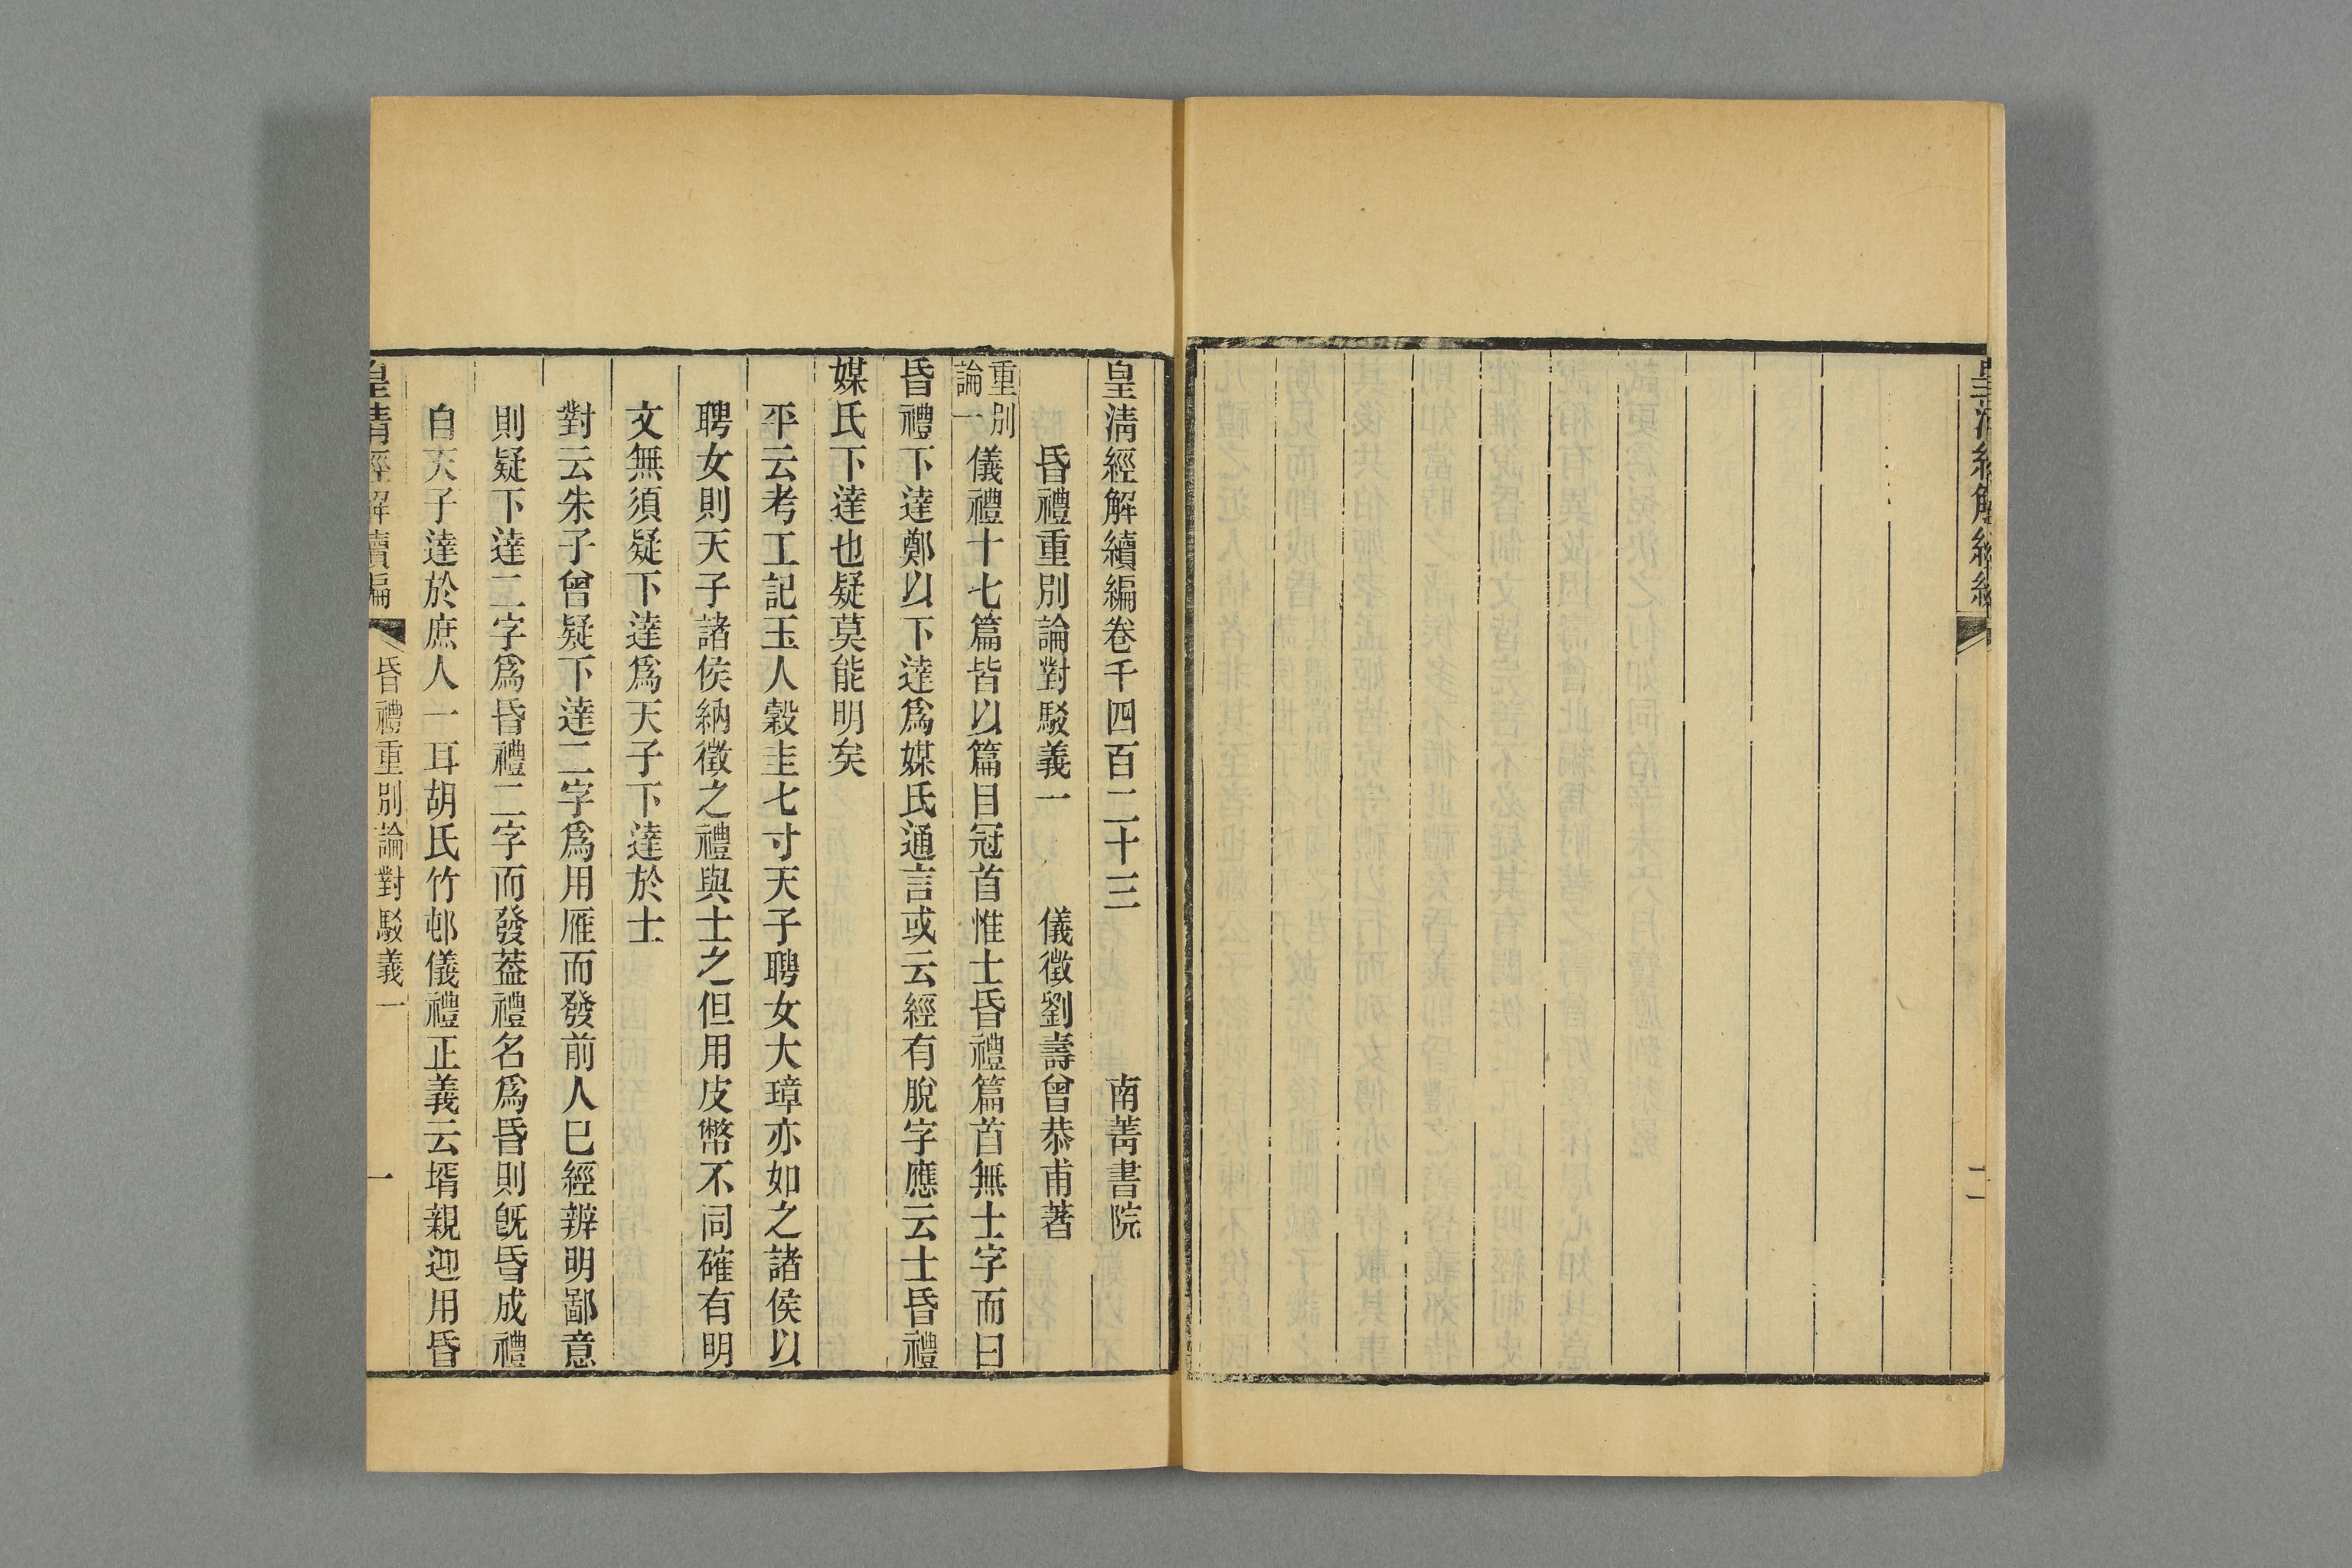 皇清經解續編
二
皇清經解續編卷千四百二十三
南菁書院
昏禮重別論對駁義一
儀徵劉壽曾恭甫著
重別論一
儀禮十七篇皆以篇目冠首惟士昏禮篇首無士字而曰
昏禮下達鄭以下達爲媒氏通言或云經有脫字應云士昏禮
媒氏下達也疑莫能明矣
平云考工記玉人穀圭七寸天子聘女大璋亦如之諸侯以
聘女則天子諸侯納徵之禮與士之但用皮幣不同確有明
文無須疑下達爲天子下達於士
對云朱子曾疑下達二字爲用雁而發前人巳經辨明鄙意
則疑下達二字爲昏禮二字而發葢禮名爲昏則旣昏成禮
自天子達於庶人一耳胡氏竹邨儀禮正義云壻親迎用昏
皇清經解續編
昏禮重別論對駁義一
一